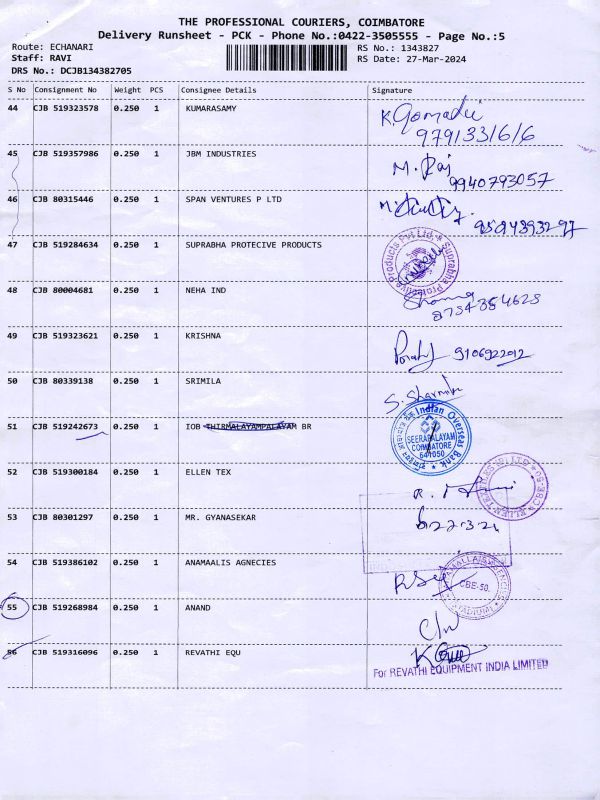 THE PROFESSIONAL COURIERS, COIMBATORE
Delivery Runsheet - PCK - Phone No.:0422-3505555 - Page No.:5
Route: ECHANARI RS No.: 1343827
Staff: RAVI RS Date: 27-Mar-2024
DRS No.: DCJB134382705
S No Consignment No Weight PCS Consignee Details Signature
44 CJB 519323578 0.250 1 KUMARASAMY K. Gomadei
979133/6/6
45 CJB 519357986 0.250 1 JBM INDUSTRIES M. Raj
9940793057
46 CJB 80315446 0.250 1 SPAN VENTURES P LTD
47 CJB 519284634 0.250 1 SUPRABHA PROTECIVE PRODUCTS Suprabha Protective Products Pvt Ltd.
48 CJB 80004681 0.250 1 NEHA IND
8754354628
49 CJB 519323621 0.250 1 KRISHNA 9106922012
50 CJB 80339138 0.250 1 SRIMILA S. Sharmila
51 CJB 519242673 0.250 1 IOB THIRMALAYAMPALAYAM BR Indian Overseas Bank
SEERAPALAYAM
COIMBATORE
641050
52 CJB 519300184 0.250 1 ELLEN TEX
53 CJB 80301297 0.250 1 MR. GYANASEKAR
54 CJB 519386102 0.250 1 ANAMAALIS AGNECIES CBE-50.
55 CJB 519268984 0.250 1 ANAND
56 CJB 519316096 0.250 1 REVATHI EQU
For REVATHI EQUIPMENT INDIA LIMITED